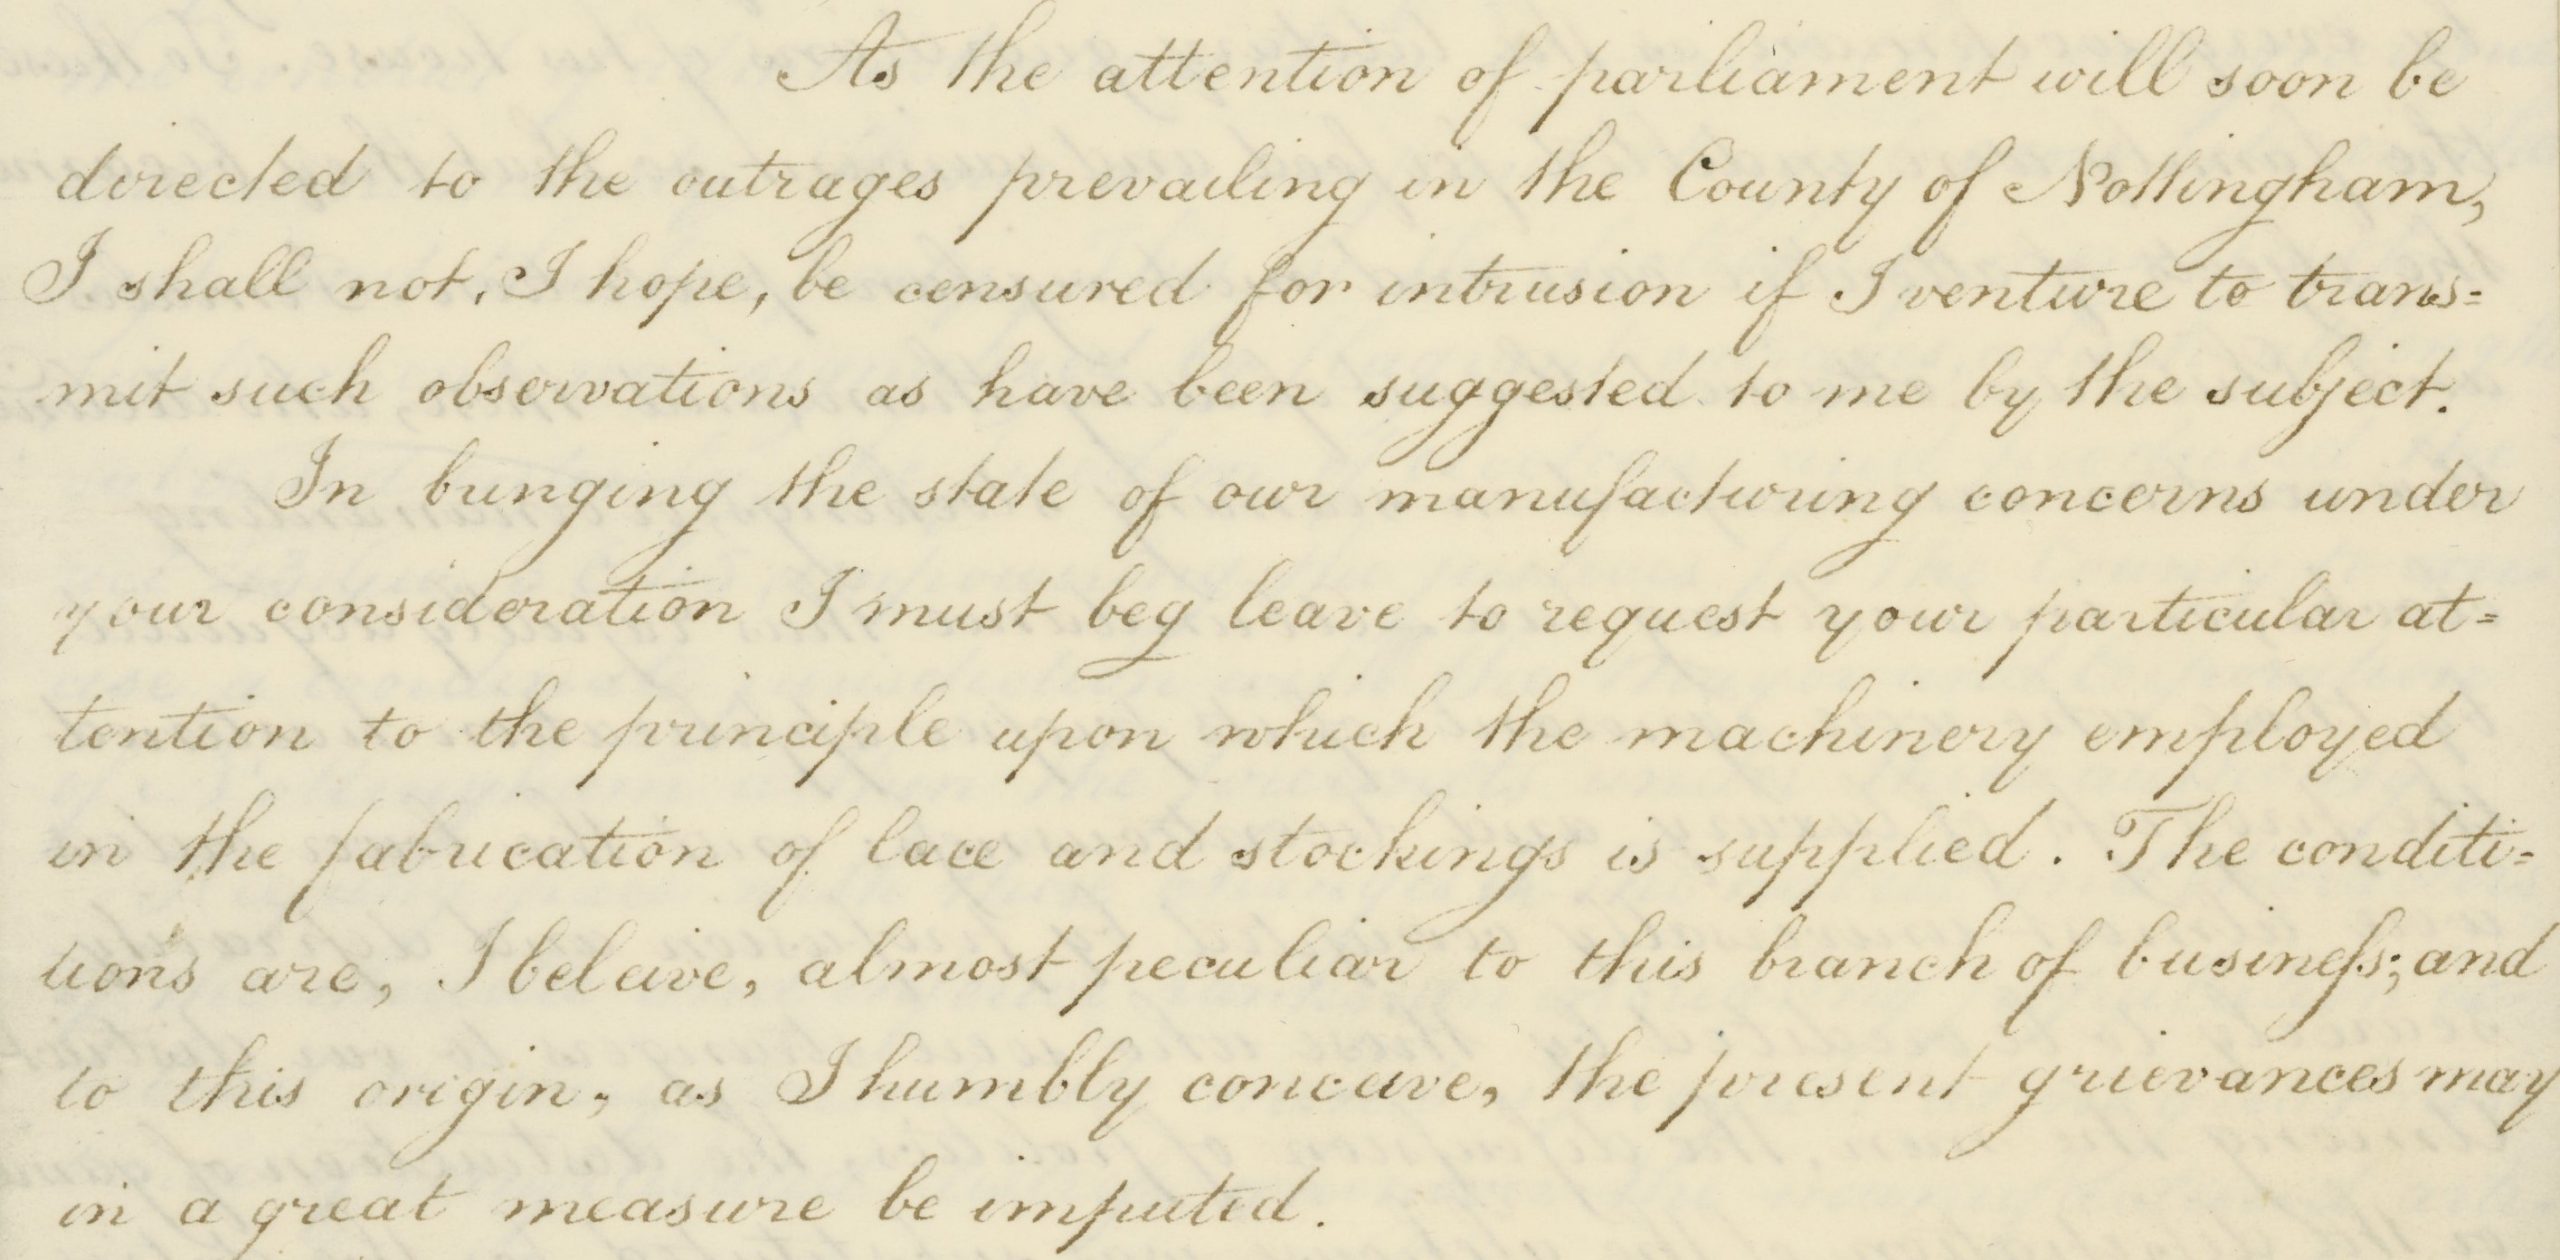 As the attention of parliament will soon be
directed to the outrages prevailing in the County of Nottingham,
I shall not, I hope, be censured for intrusion if I venture to trans=
mit such observations as have been suggested to me by the subject.
In bringing the state of our manufacturing concerns under
your consideration I must beg leave to request your particular at=
tention to the principle upon which the machinery employed
in the fabrication of lace and stockings is supplied. The conditi=
tions are, I beleive, almost peculiar to this branch of busineſs; and
to this origin, as I humbly conceive, the present grievances may
in a great measure be imputed.